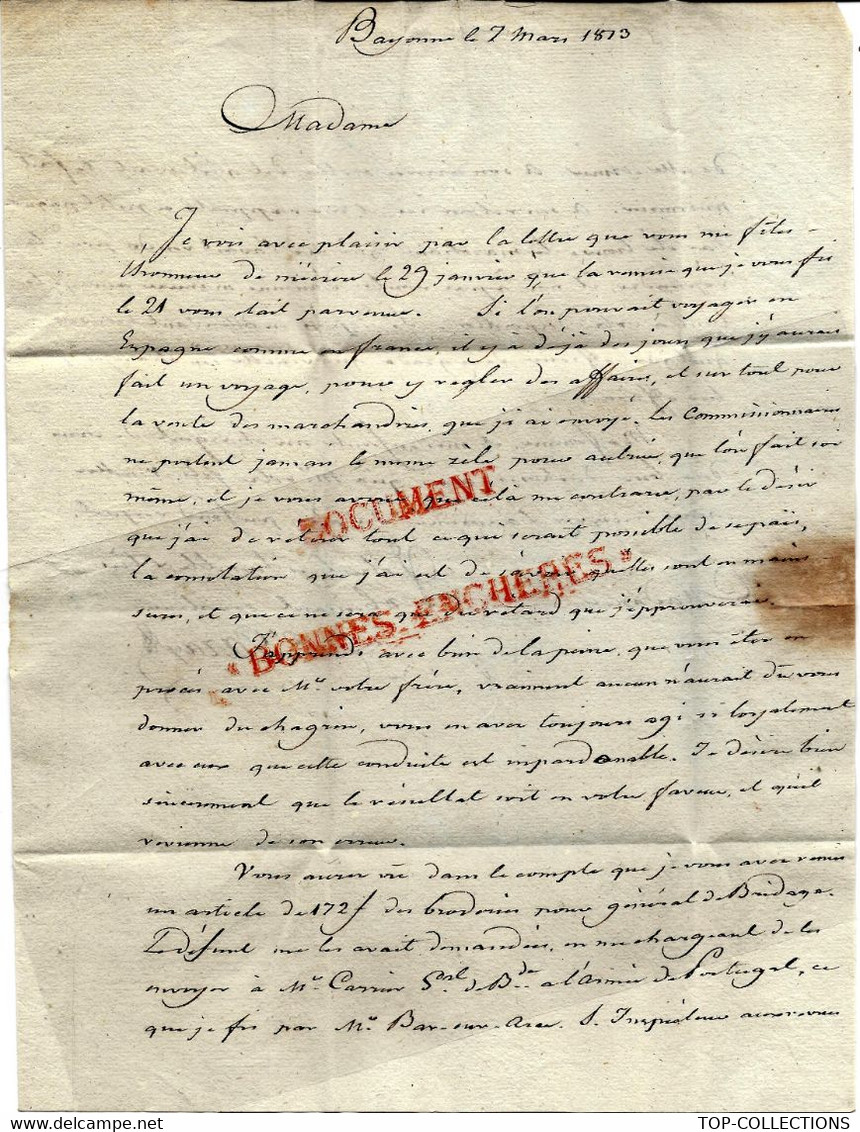 Bayonne le 7 Mars 1813
Madame
Je vois avec plaisir par la lettre que vous me fites
l'honneur de m'écrire le 29 janvier que la remise que je vous fis
le 21 vous était parvenue. Si l'on pouvait voyager en
Espagne comme en france, il y à déjà des jours que j'y aurais
fait un voyage, pour y regler des affaires, et sur tout pour
la vente des marchandises, que j'i ai envoyé. Les Commissionnaires
ne portent jamais le meme zèle pour autrui, que l'on fait soi
même, et je vous avoue que cela me contrarie, par le désir
que j'ai de retirer tout ce que serait possible de ce païs,
la consolation que j'ai est de savoir quelles sont en mains
sures, et que ce ne sera que retard que j'éprouverai.
DOCUMENT
"BONNES-ENCHERES"
J'apprends avec bien de la peine, que vous êtes en
procès avec Mr. votre frère, vraiment aucun n'aurait dû vous
donner du chagrin, vous en avez toujours agi si loyalement
avec eux que cette conduite est impardonable. Je désire bien
sincerement que le résultat soit en votre faveur, et qu'il
revienne de son erreur.
Vous aurez vû dans le compte que je vous avez remis
un article de 172 f des broderies pour général de Bridage.
Le défunt me les avait demandées, en me chargeant de les
envoyer à Mr. Carrier Gal de Bde a l'armée de Portugal, ce
que je fis par Mr. Bar-sur-
TOP-COLLECTIONS